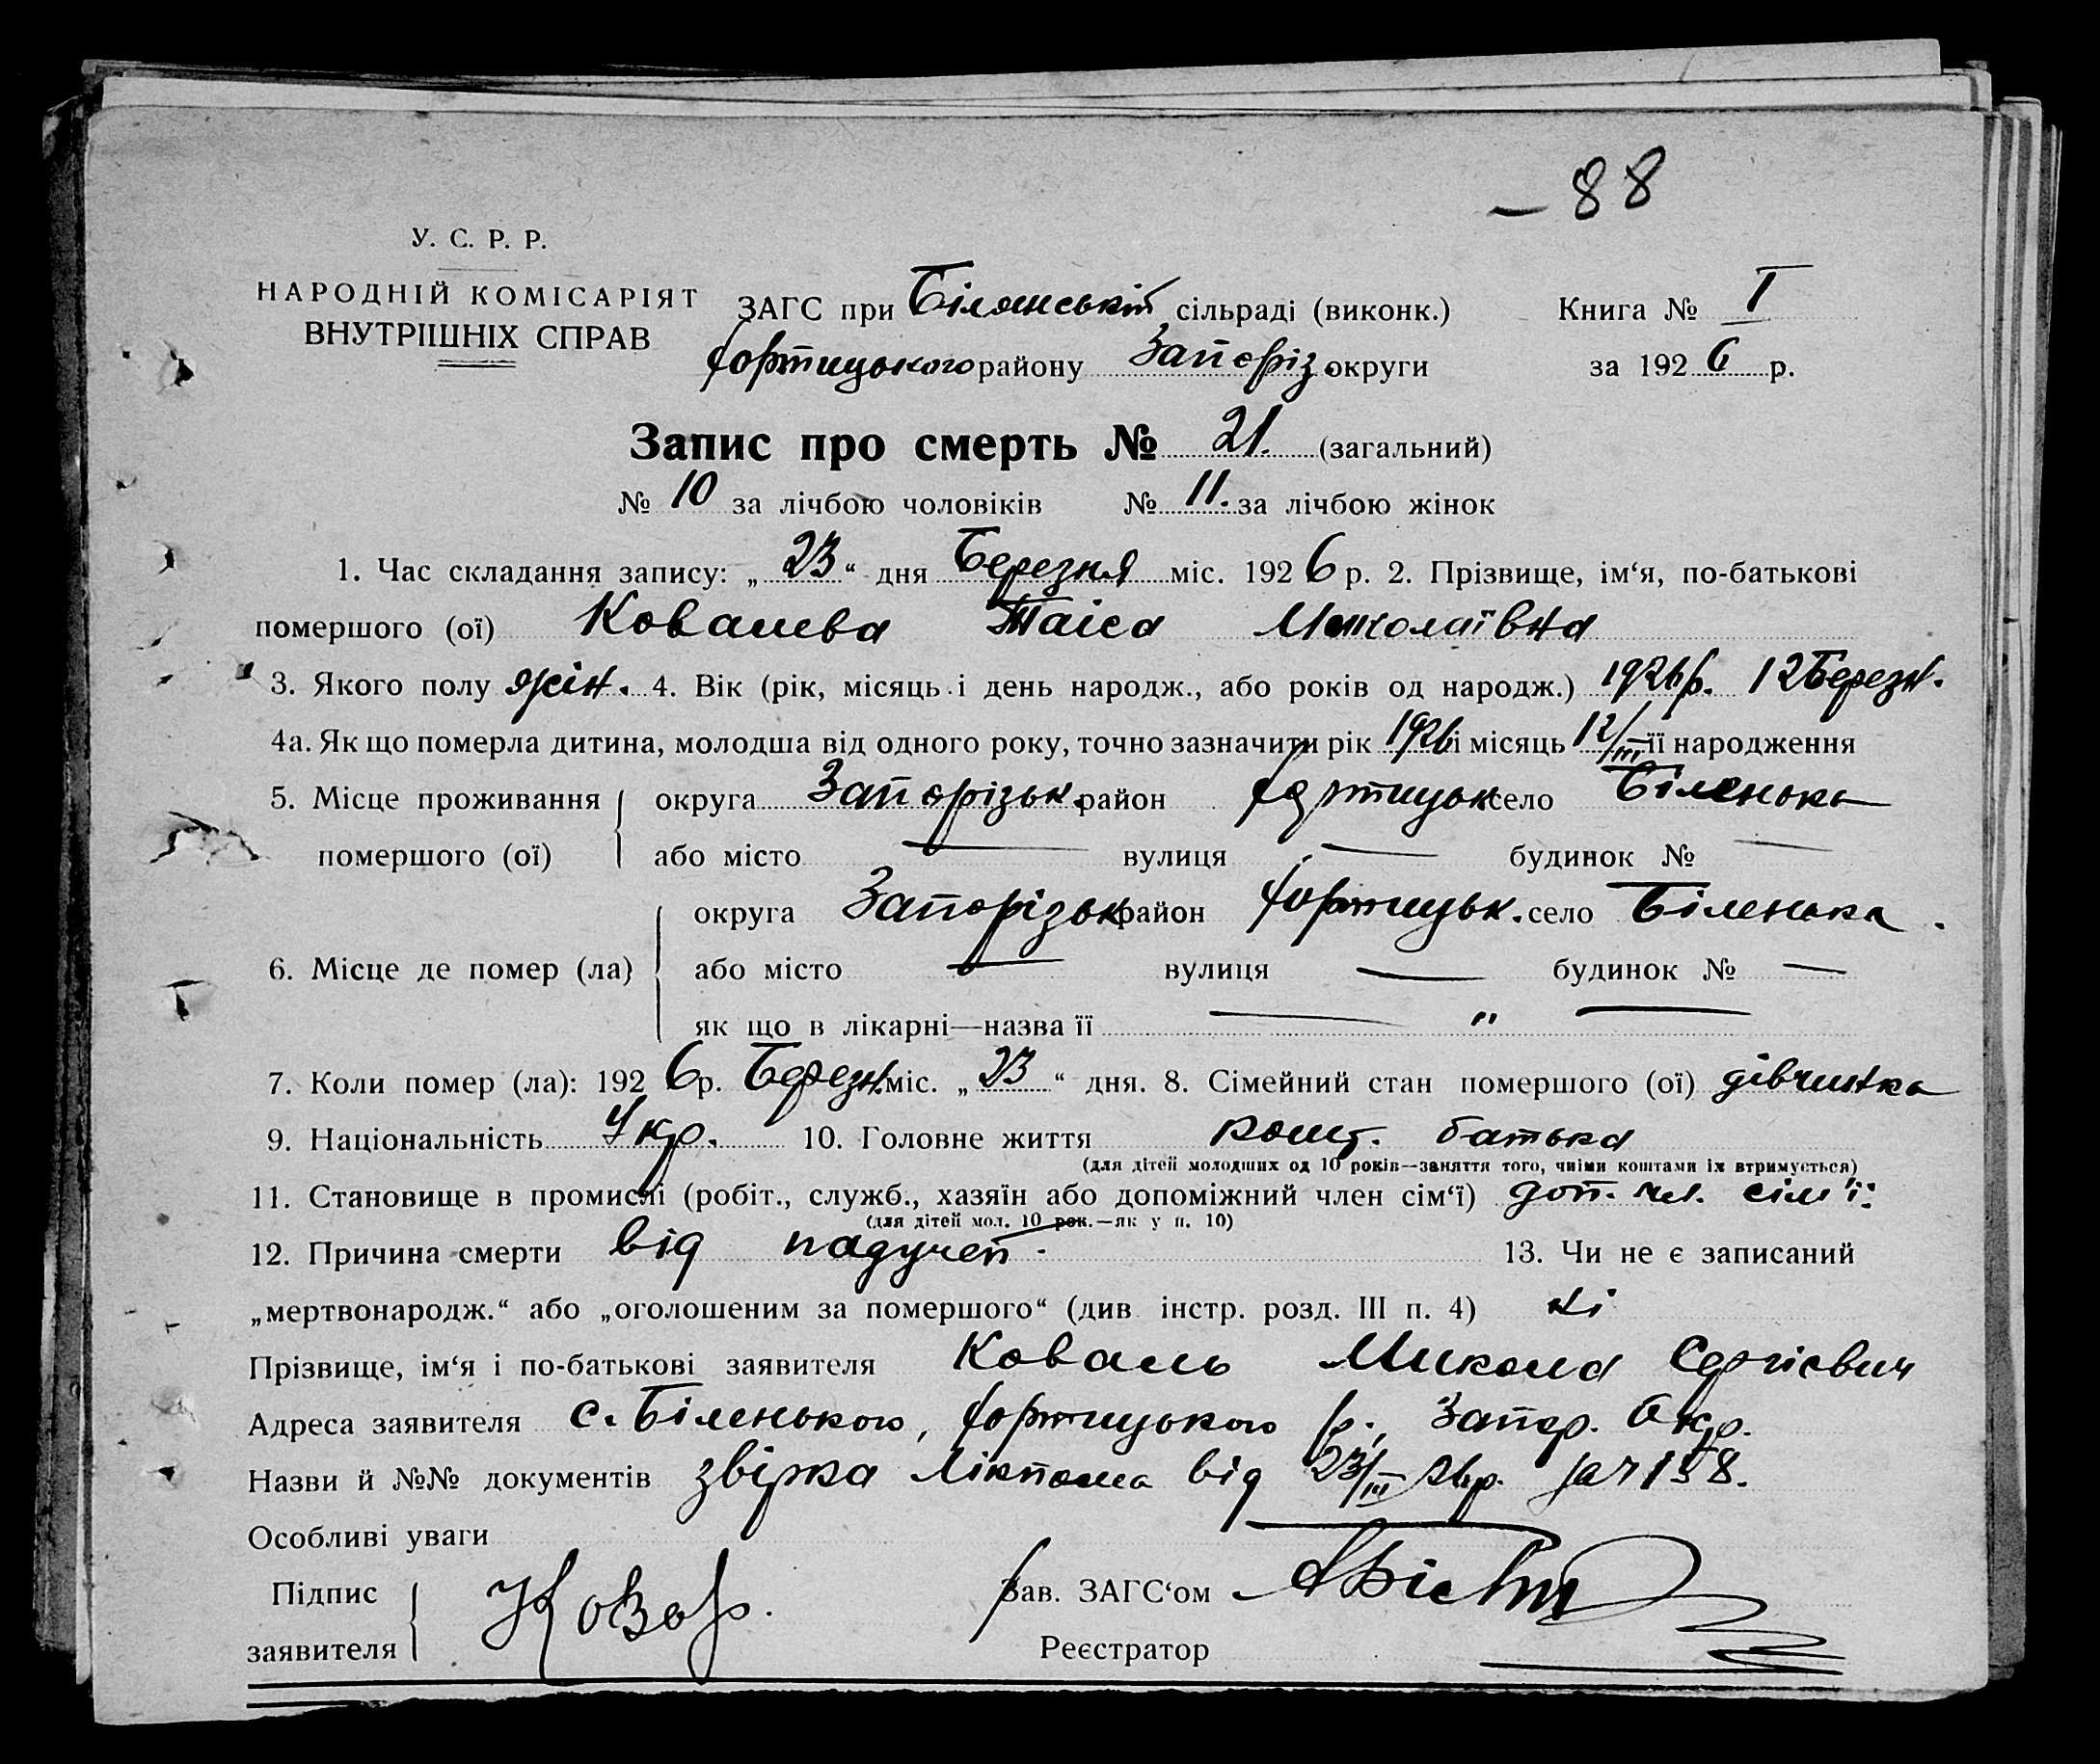 – 88
У. С. Р. Р.
НАРОДНІЙ КОМІСАРІЯТ
ВНУТРІШНІХ СПРАВ
ЗАГС при Білянській сільраді (виконк.) Книга № I
Хортицького району Запоріз. округи за 1926 р.
Запис про смерть № 21. (загальний)
№ 10 за лічбою чоловіків № 11. за лічбою жінок
1. Час складання запису: „23“ дня Березня міс. 1926 р. 2. Прізвище, ім‘я, по-батькові
помершого (ої) Ковалева Таіса Миколаївна
3. Якого полу жін. 4. Вік (рік, місяць і день народж., або років од народж.) 1926 р. 12 Березн.
4а. Як що померла дитина, молодша від одного року, точно зазначити рік 1926 і місяць 12/III її народження
5. Місце проживання округа Запорізьк. район Хортицьк село Біленька
помершого (ої) або місто — вулиця — будинок № —
округа Запорізьк район Хортицьк. село Біленька.
6. Місце де помер (ла) або місто — вулиця — будинок № —
як що в лікарні—назва її — „ —
7. Коли помер (ла): 1926 р. Березн. міс. „23“ дня. 8. Сімейний стан помершого (ої) дівчинка
9. Національність Укр. 10. Головне життя кошт. батька
(для дітей молодших од 10 років—заняття того, чиїми коштами їх втримується)
11. Становище в промислі (робіт., служб., хазяїн або допоміжний член сім‘ї) доп. чл. сім'ї.
(для дітей мол. 10 рок.—як у п. 10)
12. Причина смерти від падучей. 13. Чи не є записаний
„мертвонародж.“ або „оголошеним за помершого“ (див. інстр. розд. III п. 4) ні
Прізвище, ім‘я і по-батькові заявителя Коваль Микола Сергієвич
Адреса заявителя с. Біленького, Хортицького р., Запор. Окр.
Назви й №№ документів звірка Лікпома від 23/III 26 р. за ч 158.
Особливі уваги
Підпис
заявителя
Зав. ЗАГС‘ом
Реєстратор